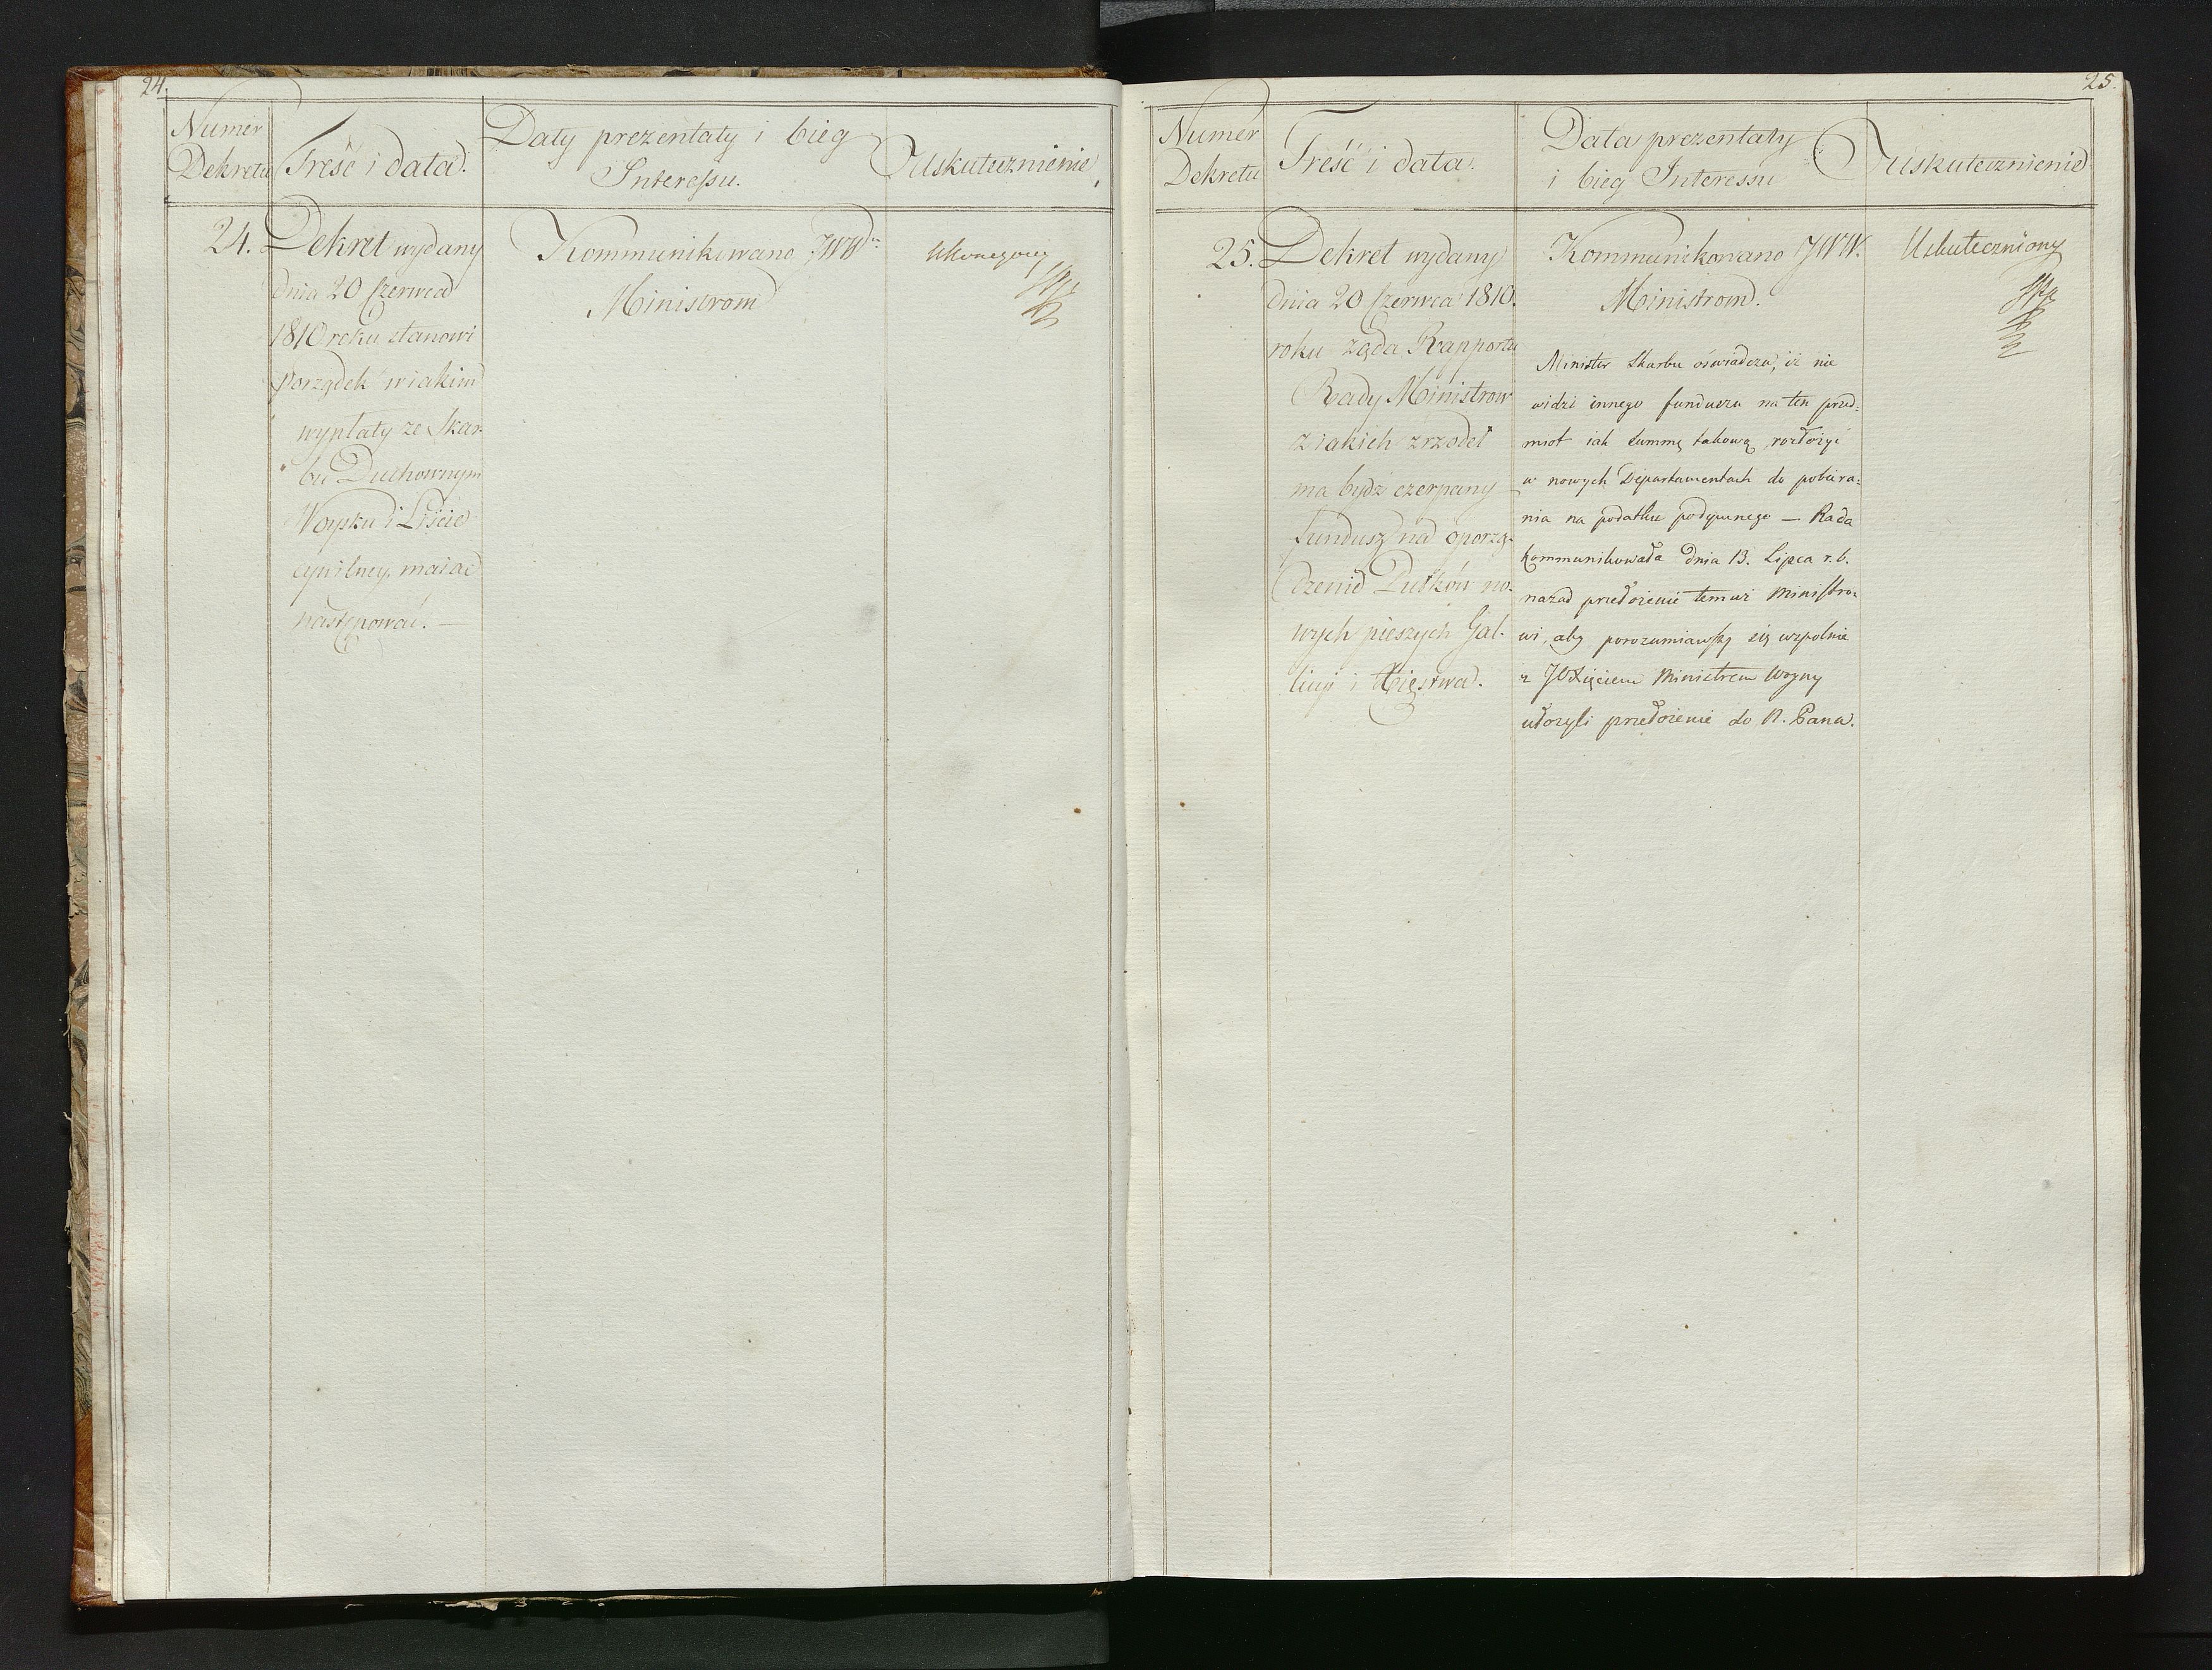 24.
Numer Dekretu
Treść i data.
Daty prezentaty i bieg
Interessu.
Uskutecznienie
24. Dekret wydany
dnia 20 Czerwca
1810 roku stanowi
porządek w iakim
wypłaty ze Skar-
bu Duchownym
Woysku i Liście
cywilney, maiać
następować. —
Kommunikowano JWW
Ministrom
25.
Numer Dekretu
Treść i data.
Data prezentaty
i bieg Interessu
Uskutecznienie
25. Dekret wydany
dnia 20 Czerwca 1810.
roku żąda Rapportu
Rady Ministrow
z iakich zrzodeł
ma bydź czerpany
fundusz na oporzą-
dzenie Pułków no-
wych pieszych Gal-
licyi i Xięstwa.
Kommunikowano JWW.
Ministrom.
Minister Skarbu oświadcza, iż nie
widzi innego funduszu na ten przed-
miot iak summę takową rozłożyć
w nowych Departamentach do pobiera-
nia na podatku podymnego — Rada
kommunikowała dnia 13. Lipca r. b.
nazad przełożenie temuż Ministro-
wi, aby porozumiawszy się wspolnie
z JO Xięciem Ministrem Woyny
ułożyli przełożenie do N. Pana.
Uskuteczniony